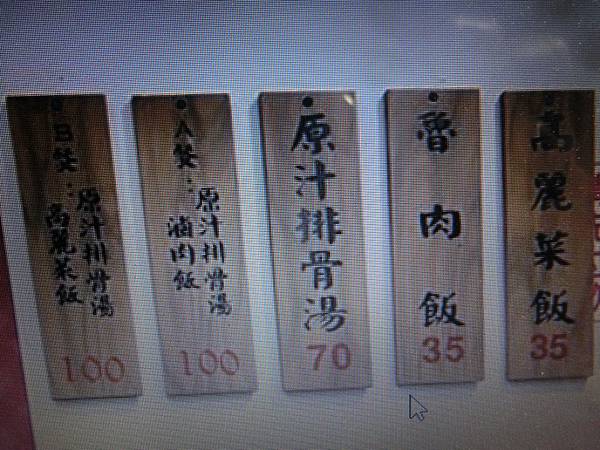 高麗菜飯
35
魯肉飯
35
原汁排骨湯
70
A餐：原汁排骨湯
滷肉飯
100
B餐：原汁排骨湯
高麗菜飯
100